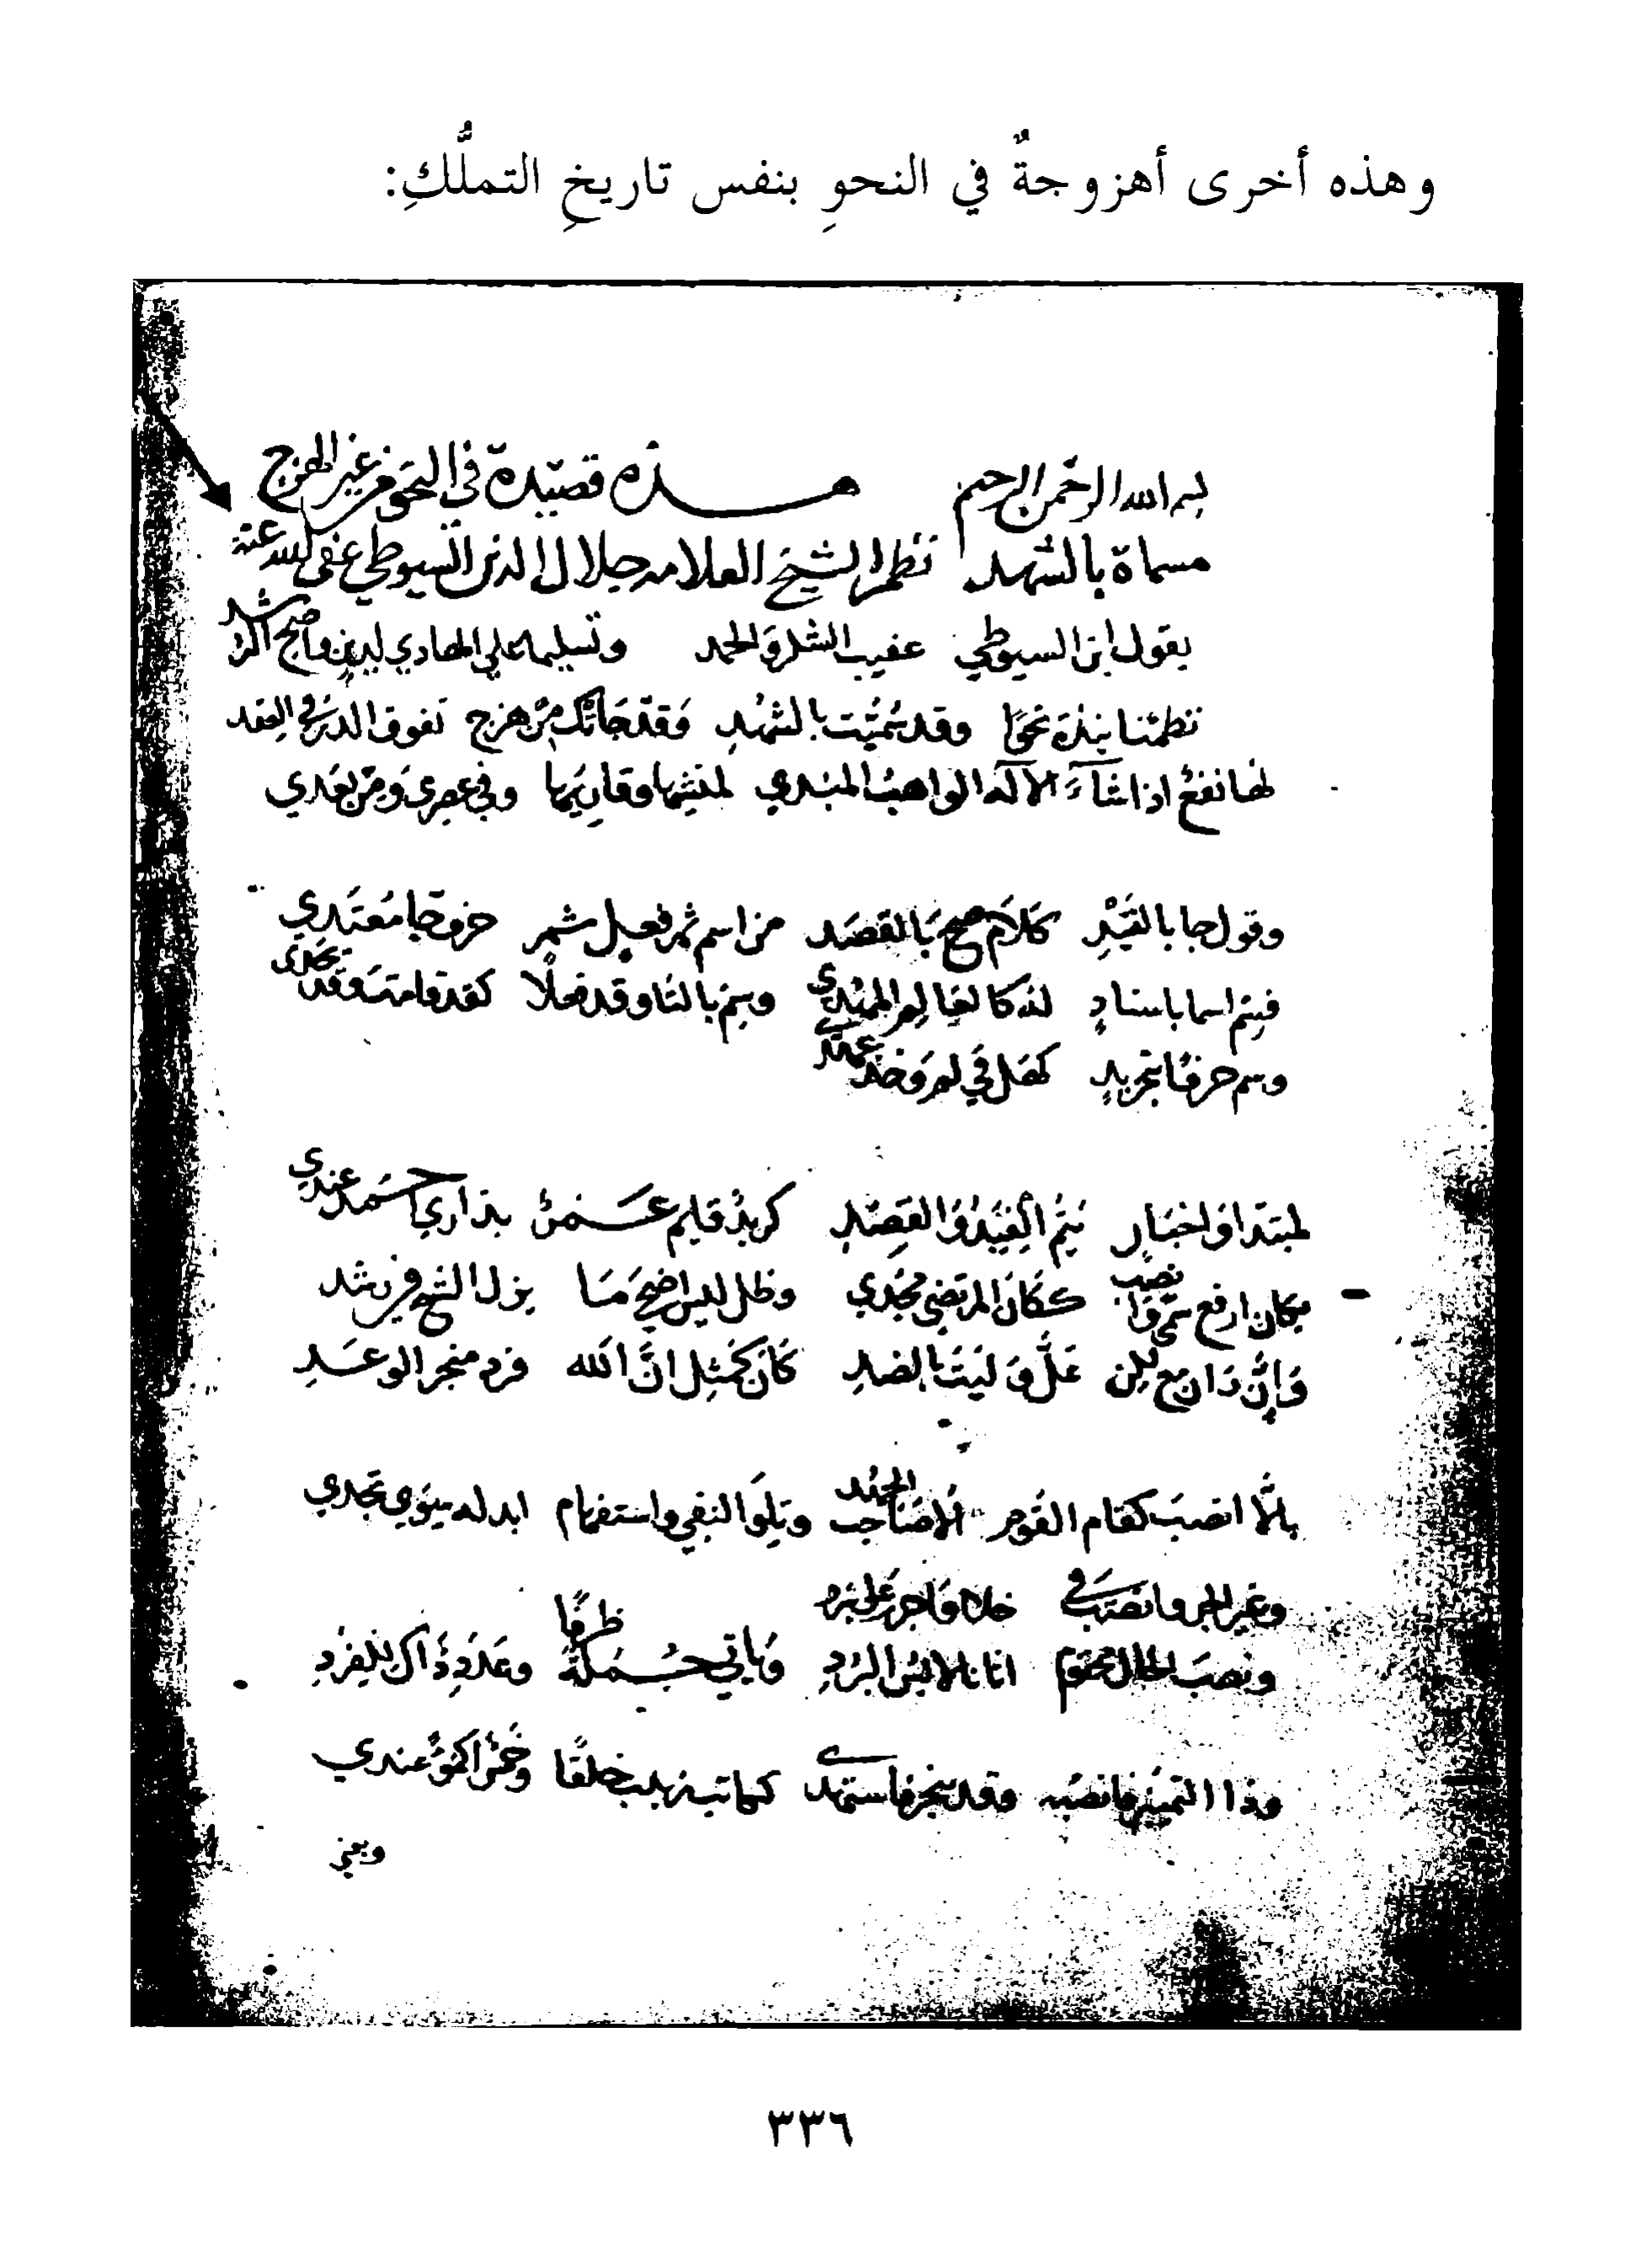 وهذه أخرى أهزوجةٌ في النحوِ بنفس تاريخِ التملُّكِ:
بسم الله الرحمن الرحيم هذه قصيدة في النحو من غير الهزج
مسماة بالشهد نظم الشيخ العلامه جلال الدين السيوطي عفى الله عنه
يقول ابن السيوطي عقيب الشكر والحمد وتسليم علي الهادي لدين واضح الرشد
نظمنا نبذة نحوًا وقد سُمِّيَت بالشهدِ وقد جاتك من هزج تفوق الدر في العِقد
لها نفع اذا شاء الاله الواهب المبدي لمنشيها وقاريها وفي عصري ومن بعدي
وقول جا بالقيدِ كلام صح بالقصد من اسم ثم فعل ثم حرف جا معتدي
فسم اسما باسنادٍ وسم بالتا وقد فعلًا كقد قامت وقد تجدى
وسم حرفًا بتجريدٍ كهل في لم وخذ
لمبتدا واخبار يتم القيد والقصد عمن بداري احمد عندي
بكان ارفع سمى وانصب ككان المرتضي مجدي وظل ليس اضحى ما يزل الشيخ في رشد
وإنَّ وان مع لكن علّ وليت بالضدِ كان كمثل انَّ الله فرد منجز الوعدِ
بالّا انصب كقام القوم الا صاحب الجند وتلو النفي واستفهام ابدله سوي تجدي
وغير الجر وانصب في خلا
ونصب الحال محتوم انا بلابس البُرد وياتي جملة ظرفًا وعدد ذاك للفرد
وذا التمييز فانصبه وقد ينجر فاستهدى كماتب زيد خلقًا وخمرًا كمؤ عندي
وبعني
٣٣٦